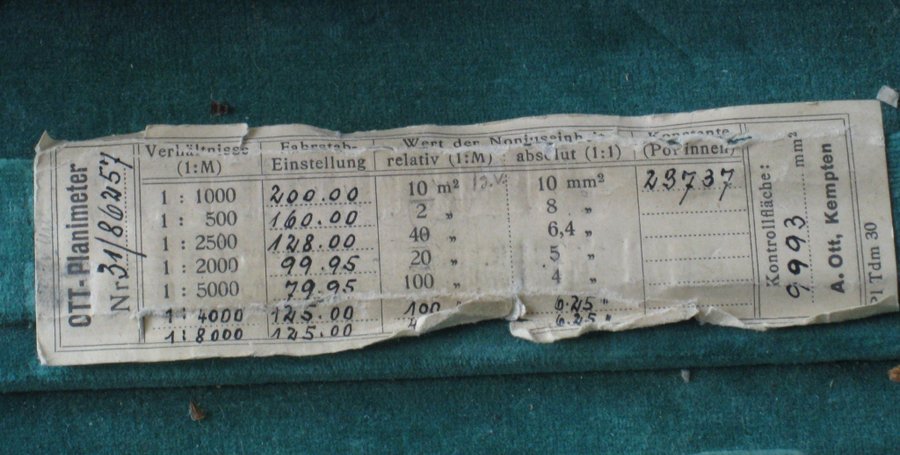 OTT-Planimeter
Nr. 31/86257
Verhältnisse Fahrstab- Wert der Noniuseinheit Konstante
(1:M) Einstellung relativ (1:M) absolut (1:1) (Pol innen)
1 : 1000 200.00 10 m² 10 mm² 23737
1 : 500 160.00 2 „ 8 „
1 : 2500 128.00 40 „ 6,4 „
1 : 2000 99.95 20 „ 5 „
1 : 5000 79.95 100 „ 4 „
1 : 4000 125.00 100 " 6.25 "
1 : 8000 125.00 6.25 "
Kontrollfläche:
9993 mm²
A. Ott, Kempten
Pl Tdm 30